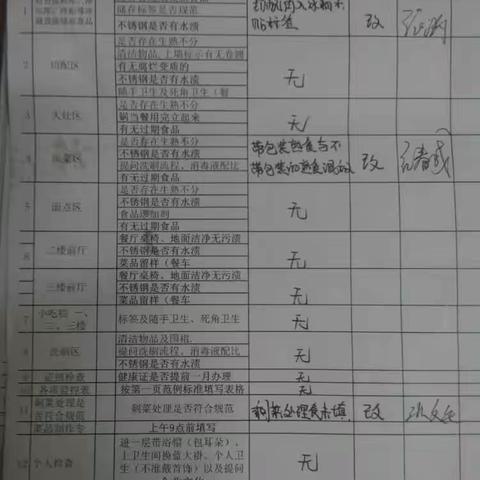 1
储存标签是否规范
不锈钢是否有水渍
贴标签
改
2
切配区
是否存在生熟不分
清洁物品,上墙标示有无卷翘
有无腐烂变质的
不锈钢是否有水渍
随手卫生及死角卫生(餐
无
3
大灶区
是否存在生熟不分
锅当餐用完立起来
有无过期食品
无
4
是否存在生熟不分
不锈钢是否有水渍
提问洗刷流程,消毒液配比
有无过期食品
带包装熟食与不
带包装的熟食混放
改
5
面点区
是否存在生熟不分
不锈钢是否有水渍
食品添加剂
有无过期食品
无
6
二楼前厅
餐厅桌椅、地面洁净无污渍
不锈钢是否有水渍
菜品留样(餐车
无
三楼前厅
餐厅桌椅、地面洁净无污渍
不锈钢是否有水渍
菜品留样(餐车
无
7
小吃档 一、
二、三楼
标签及随手卫生、死角卫生
无
8
洗刷区
清洁物品及围裙.
提问洗刷流程,消毒液配比
不锈钢是否有水渍
无
9
证照检查
健康证是否提前一月办理
无
10
各项监督表
按第一页范例标准填写表格
无
11
剩菜处理是
否符合规范
剩菜处理是否符合规范
剩菜处理表未填
改
上午9点前填写
12
个人检查
进一层带浴帽(包耳朵)、
上卫生间换蓝大褂、个人卫
生(不准戴首饰)以及提问
无